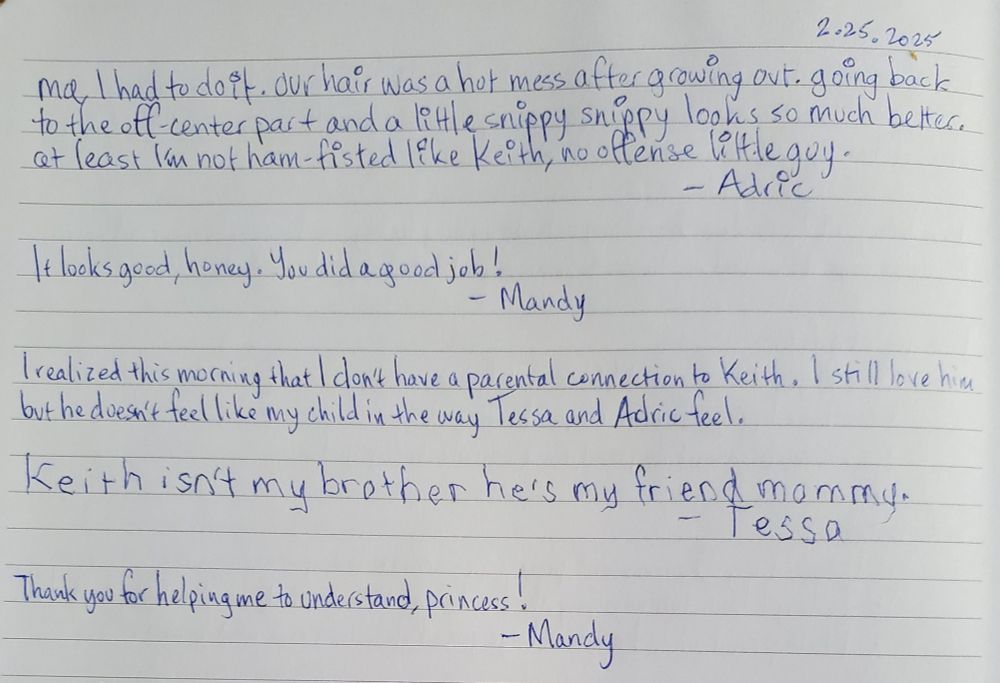 2.25.2025
ma, I had to do it. our hair was a hot mess after growing out. going back
to the off-center part and a little snippy snippy looks so much better.
at least I'm not ham-fisted like Keith, no offense little guy.
- Adric
It looks good, honey. You did a good job!
- Mandy
I realized this morning that I don't have a parental connection to Keith. I still love him
but he doesn't feel like my child in the way Tessa and Adric feel.
Keith isn't my brother he's my friend mommy.
- Tessa
Thank you for helping me to understand, princess!
- Mandy